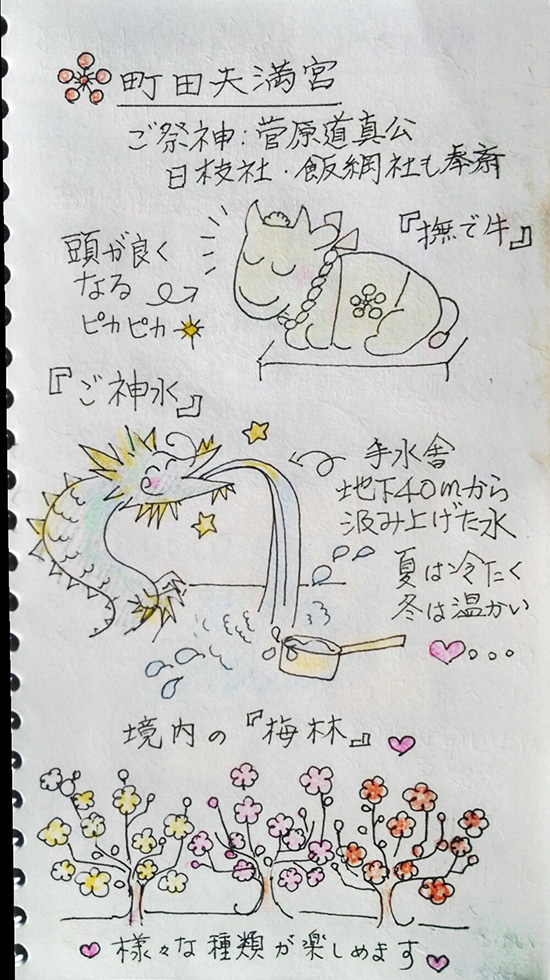 町田天満宮
ご祭神:菅原道真公
日枝社・飯綱社も奉斎
『撫で牛』
頭が良く
なる
ピカピカ
『ご神水』
手水舎
地下40mから
汲み上げた水
夏は冷たく
冬は温かい
境内の『梅林』
様々な種類が楽しめます